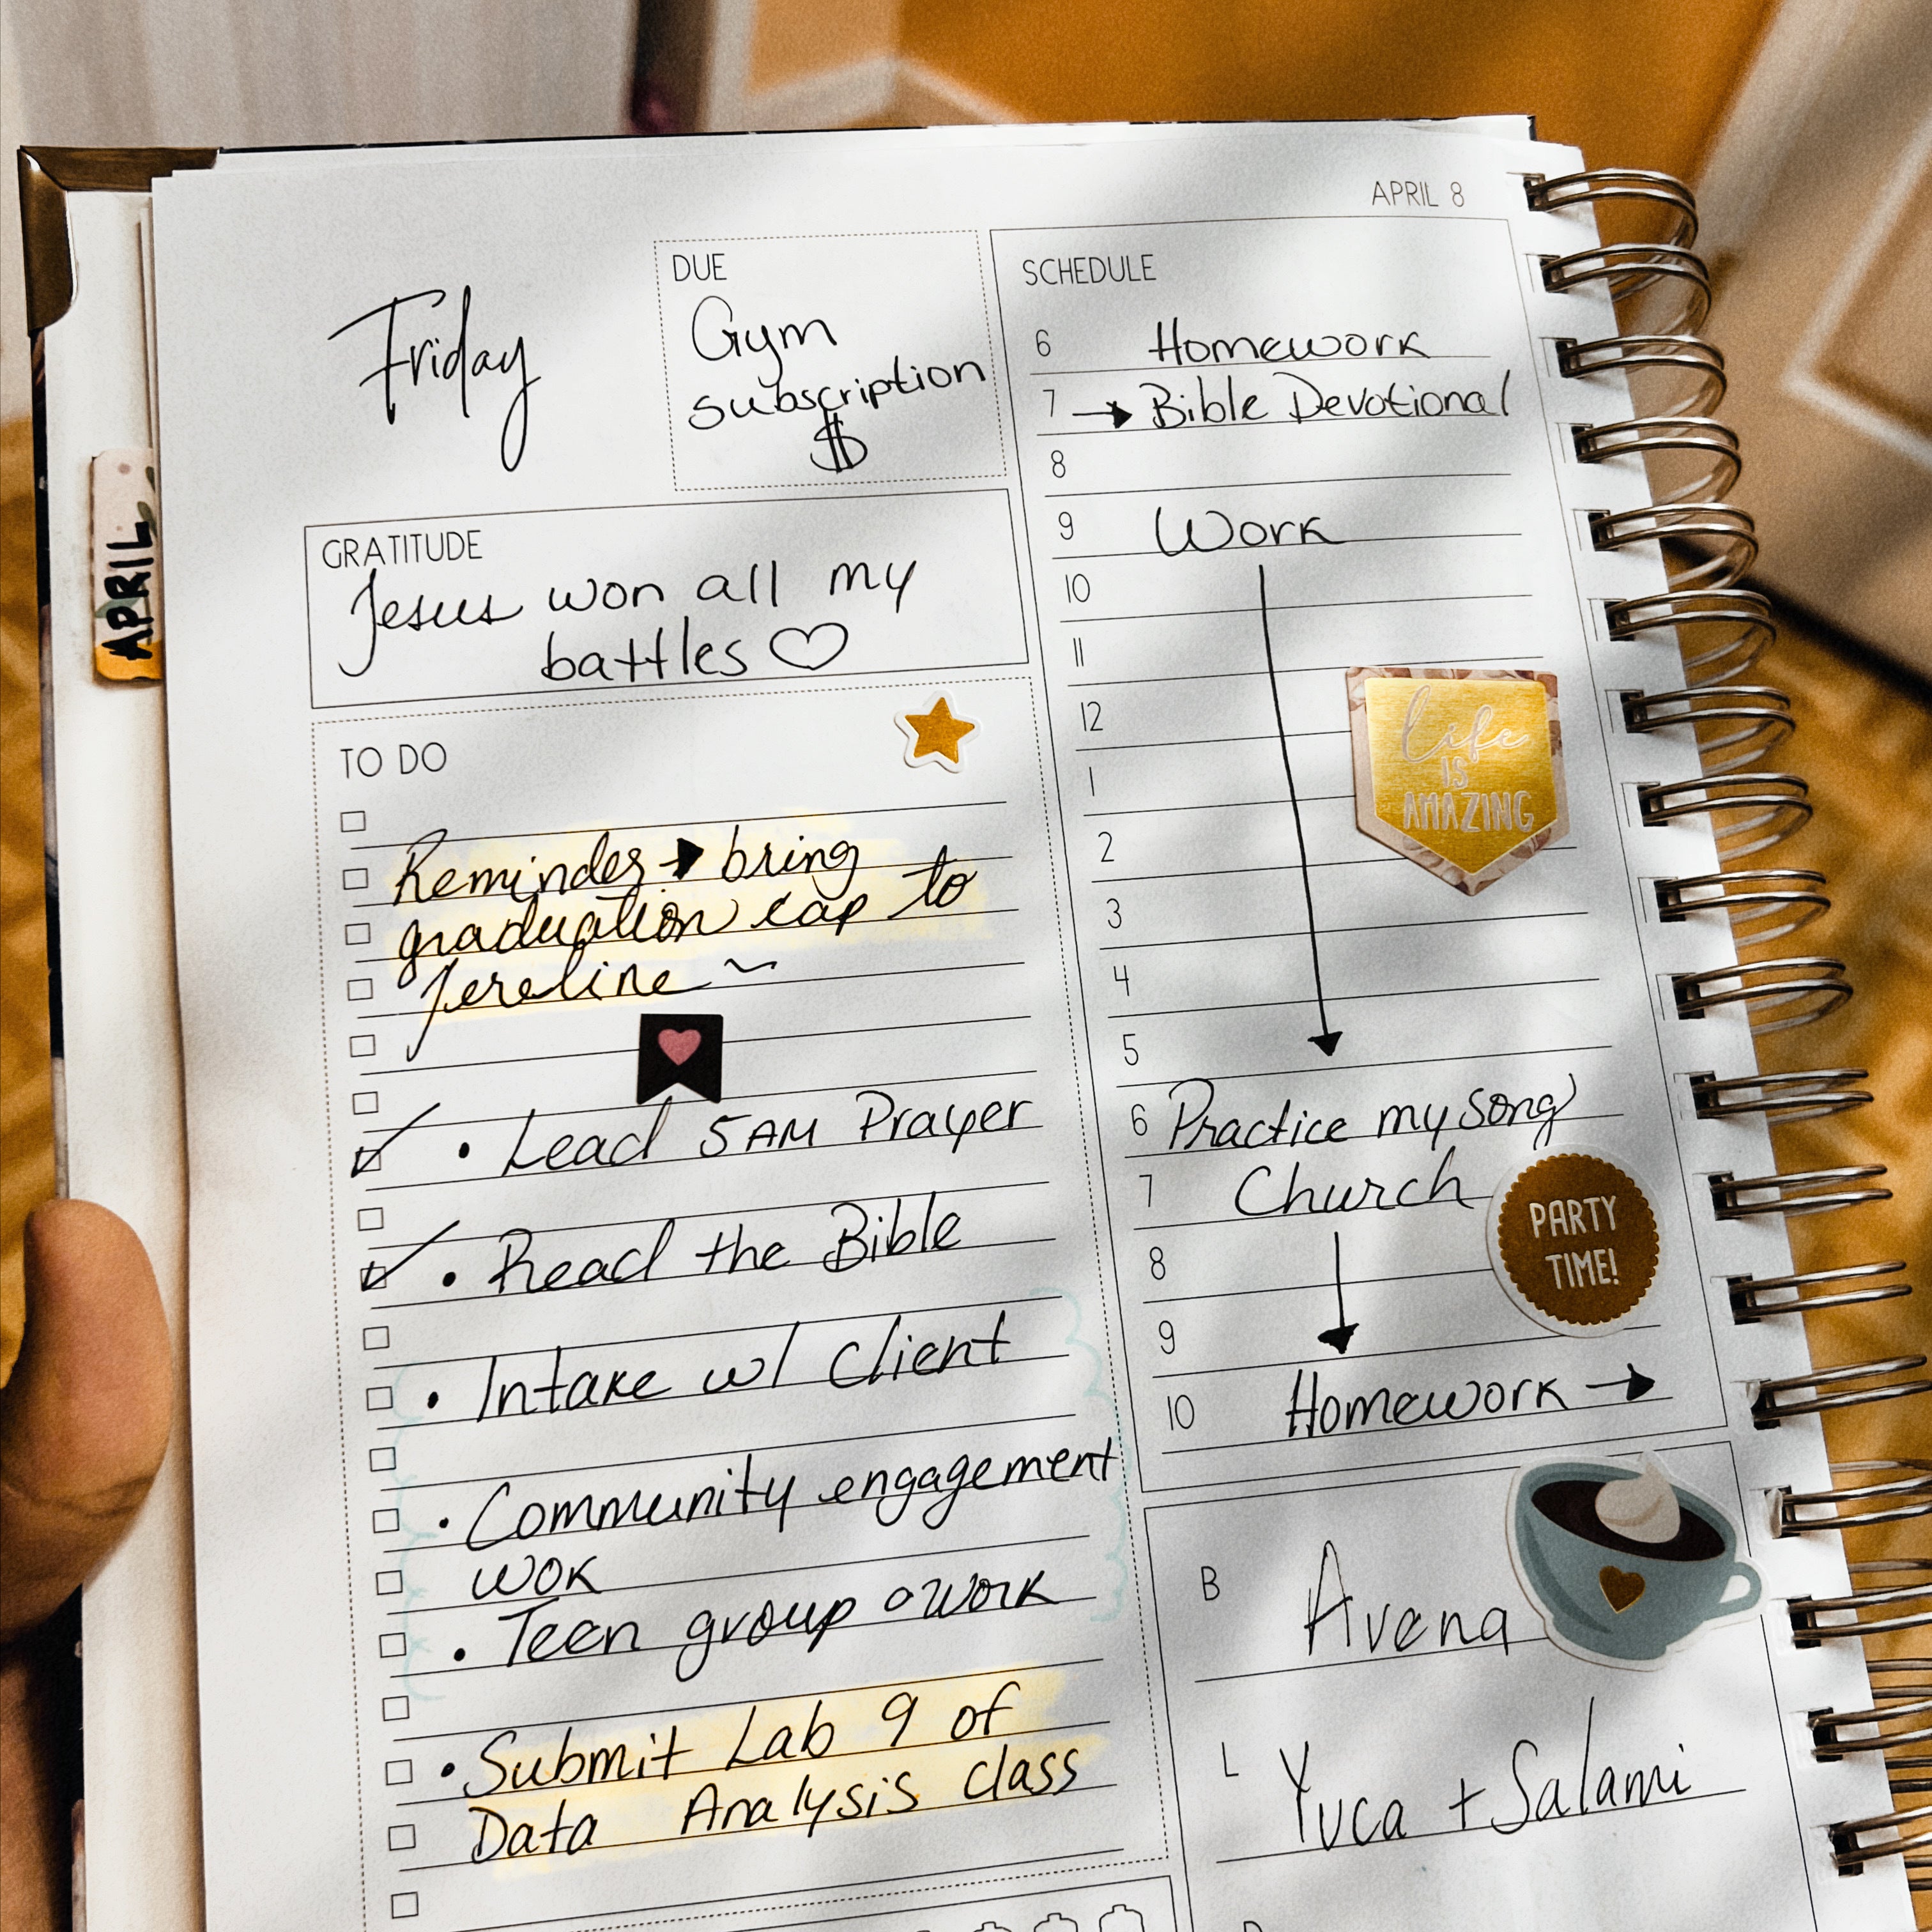 APRIL 8
Friday
DUE
Gym
subscription
$
GRATITUDE
Jesus won all my
battles ♡
TO DO
Reminder → bring
graduation cap to
Jereline ~
• Lead 5AM Prayer
• Read the Bible
• Intake w/ Client
• Community engagement
wok
• Teen group work
• Submit Lab 9 of
Data Analysis class
SCHEDULE
6 Homework
7 → Bible Devotional
8
9 Work
10
11
12
1
2
3
4
5
6 Practice my song
7 Church
8
9
10 Homework →
life
IS
AMAZING
PARTY
TIME!
B Avena
L Yuca + Salami
APRIL